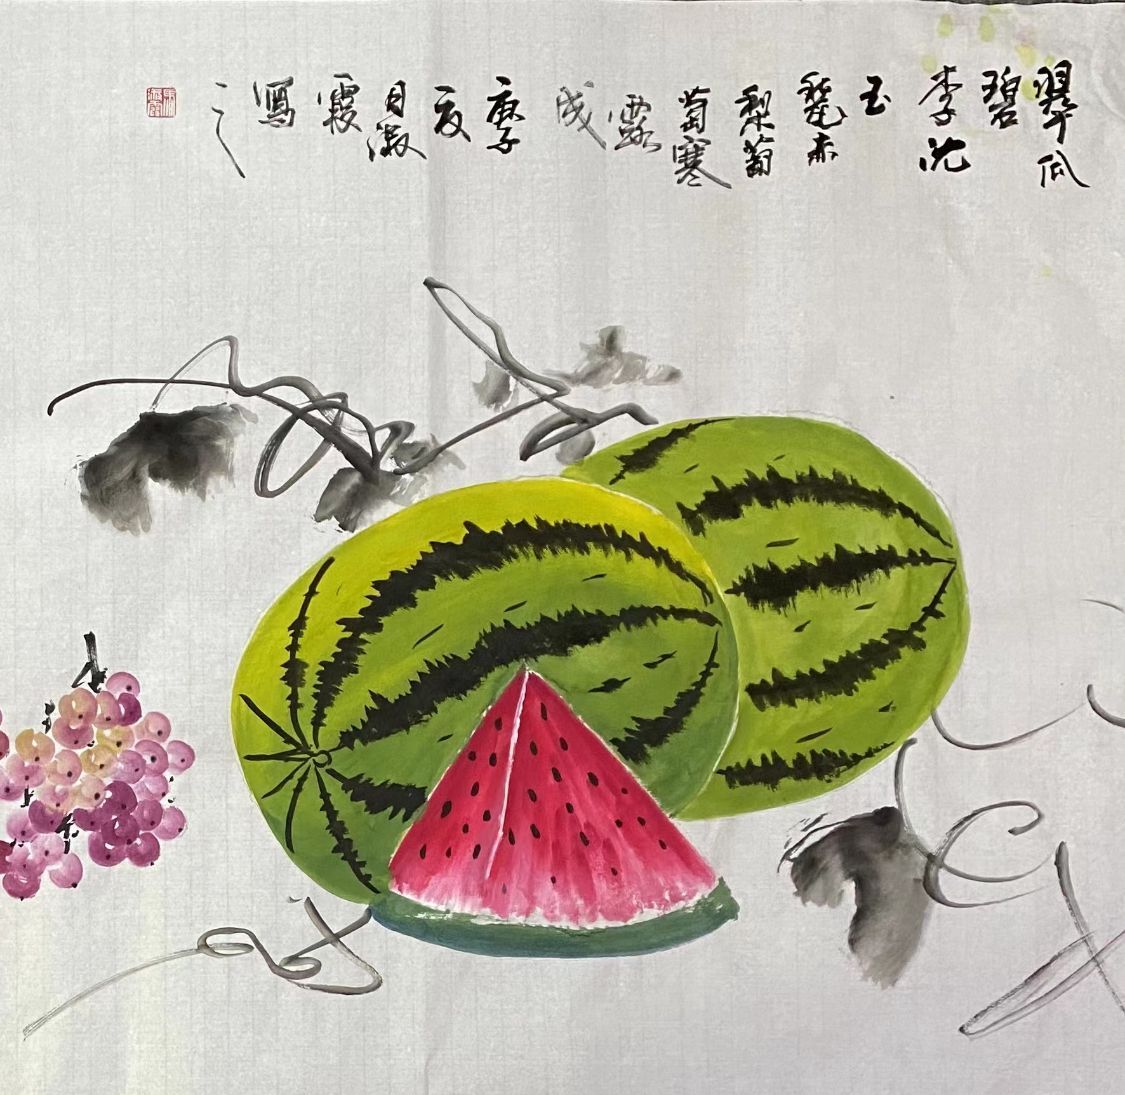 翠瓜
碧
李沈
玉
甃赤
梨葡
萄寒
露
成
庚子
夏
月淑
霞
寫
之